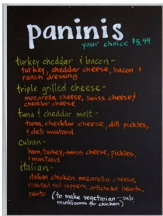 paninis
your choice $5.99
turkey cheddar & bacon -
turkey, cheddar cheese, bacon &
ranch dressing
triple grilled cheese -
mozzarella cheese, swiss cheese &
cheddar cheese
tuna & cheddar melt -
tuna, cheddar cheese, dill pickles,
& deli mustard
cuban -
ham, turkey, swiss cheese, pickles,
& mustard
italian -
italian chicken, mozzarella cheese,
roasted red peppers, artichoke hearts,
pesto (to make vegetarian - sub
mushrooms for chicken)